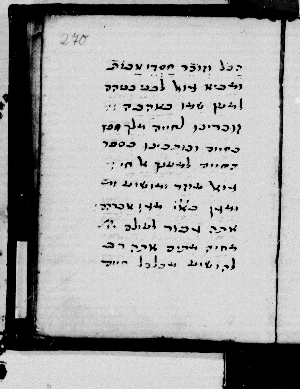 270
הכל וזוכר חסדי אבות
ומביא גואל לבני בניהם
למען שמו באהבה
זוכרינו לחיים מלך חפץ
בחיים וכותבינו בספר
החיים למענך אל חי
עוזר ומושיע
ומגן בא״י מגן אברהם
אתה גבור לעולם יי
מחיה מתים אתה רב
להושיע מכלכל חיים